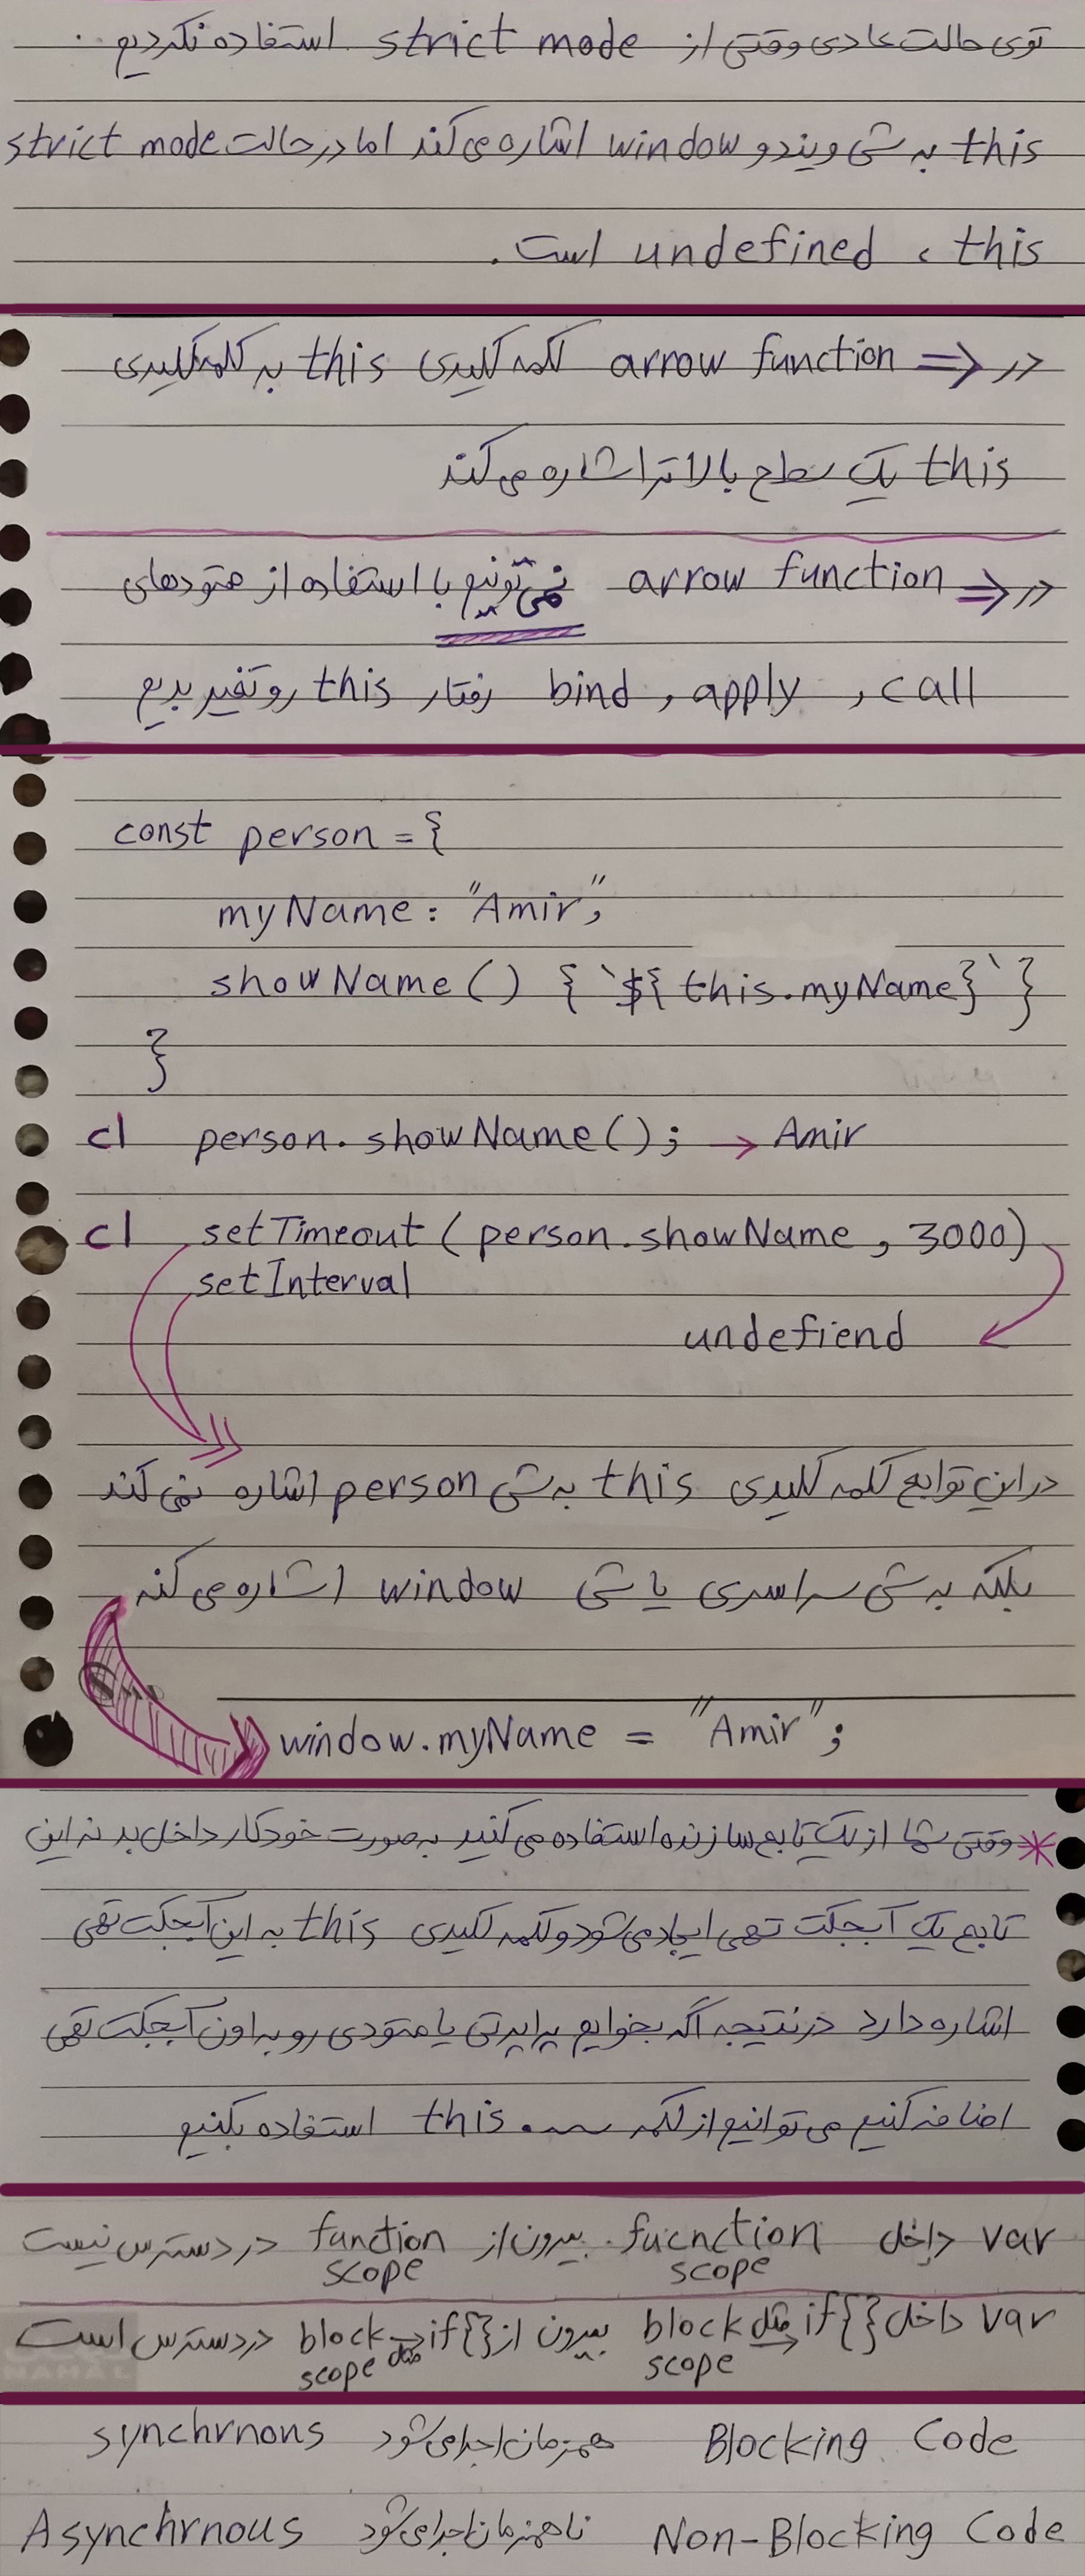 توی حالت عادی وقتی از strict mode استفاده نکردیم
this به شی ویندو window اشاره می‌کند اما در حالت strict mode
this ، undefined است.
در => arrow function کلمه کلیدی this به کلمه کلیدی
this یک سطح بالاتر اشاره می‌کند
در => arrow function نمی‌تونیم با استفاده از متودهای
call , apply , bind رفتار this رو تغییر بدیم
const person = {
myName: "Amir",
showName() { `${this.myName}` }
}
cl person.showName(); → Amir
cl setTimeout(person.showName, 3000)
setInterval
undefiend
در این توابع کلمه کلیدی this به شی person اشاره نمی‌کند
بلکه به شی سراسری یا شی window اشاره می‌کنه
window.myName = "Amir";
* وقتی شما از یک تابع سازنده استفاده می‌کنید به صورت خودکار داخل بدنه این
تابع یک آبجکت تهی ایجاد می‌شود و کلمه کلیدی this به این آبجکت تهی
اشاره دارد در نتیجه اگه بخوایم پراپرتی یا متودی رو به اون آبجکت تهی
اضافه کنیم می‌توانیم از کلمه this. استفاده بکنیم
var داخل fucnction scope بیرون از function scope در دسترس نیست
var داخل if{} مثل block scope بیرون از if{} مثل block scope در دسترس است
NAHAL
Blocking Code همزمان اجرا می‌شود synchrnons
Non-Blocking Code ناهمزمان اجرا می‌شود Asynchrnous